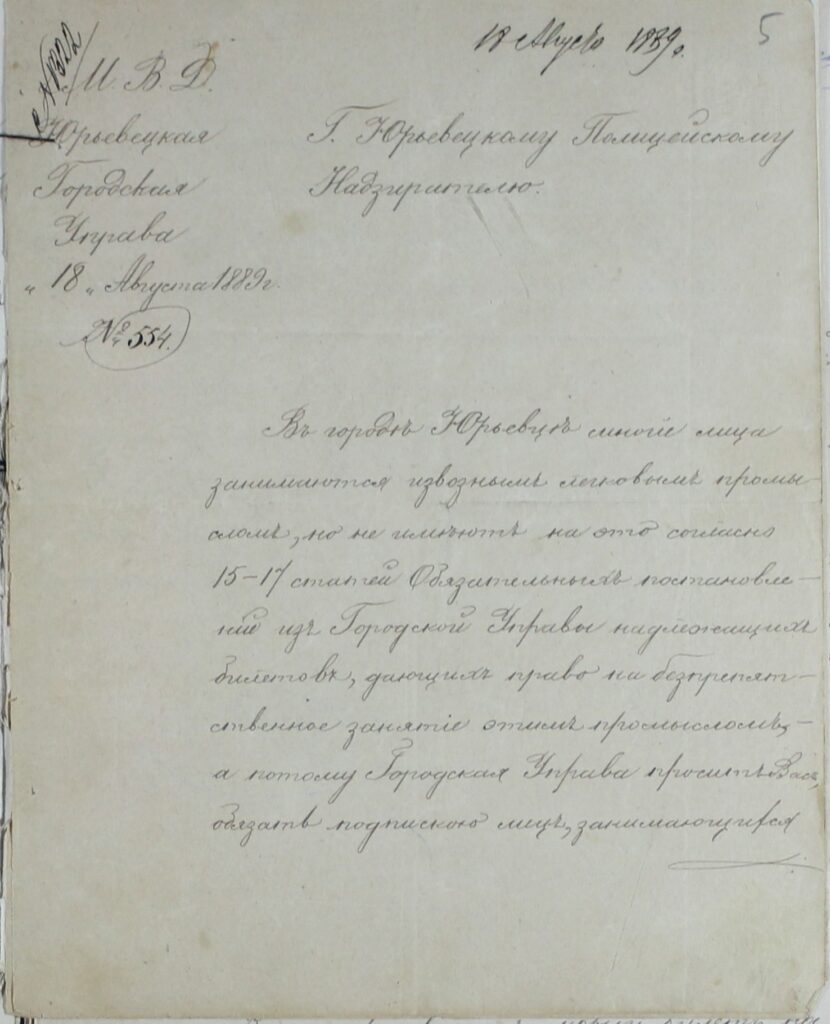 18 Августа 1889 г.
5
№ 1322
М. В. Д.
Юрьевецкая
Городская
Управа
„ 18 „ Августа 1889 г.
№ 554.
Г. Юрьевецкому Полицейскому
Надзирателю.
Въ городѣ Юрьевцѣ многіе лица
занимаются извознымъ легковымъ промы-
сломъ, но не имѣютъ на это согласно
15-17 статей Обязательныхъ постановле-
ній изъ Городской Управы надлежащихъ
билетовъ, дающихъ право на безпрепят-
ственное занятіе этимъ промысломъ, -
а потому Городская Управа проситъ Васъ,
обязать подпискою лицъ, занимающихся